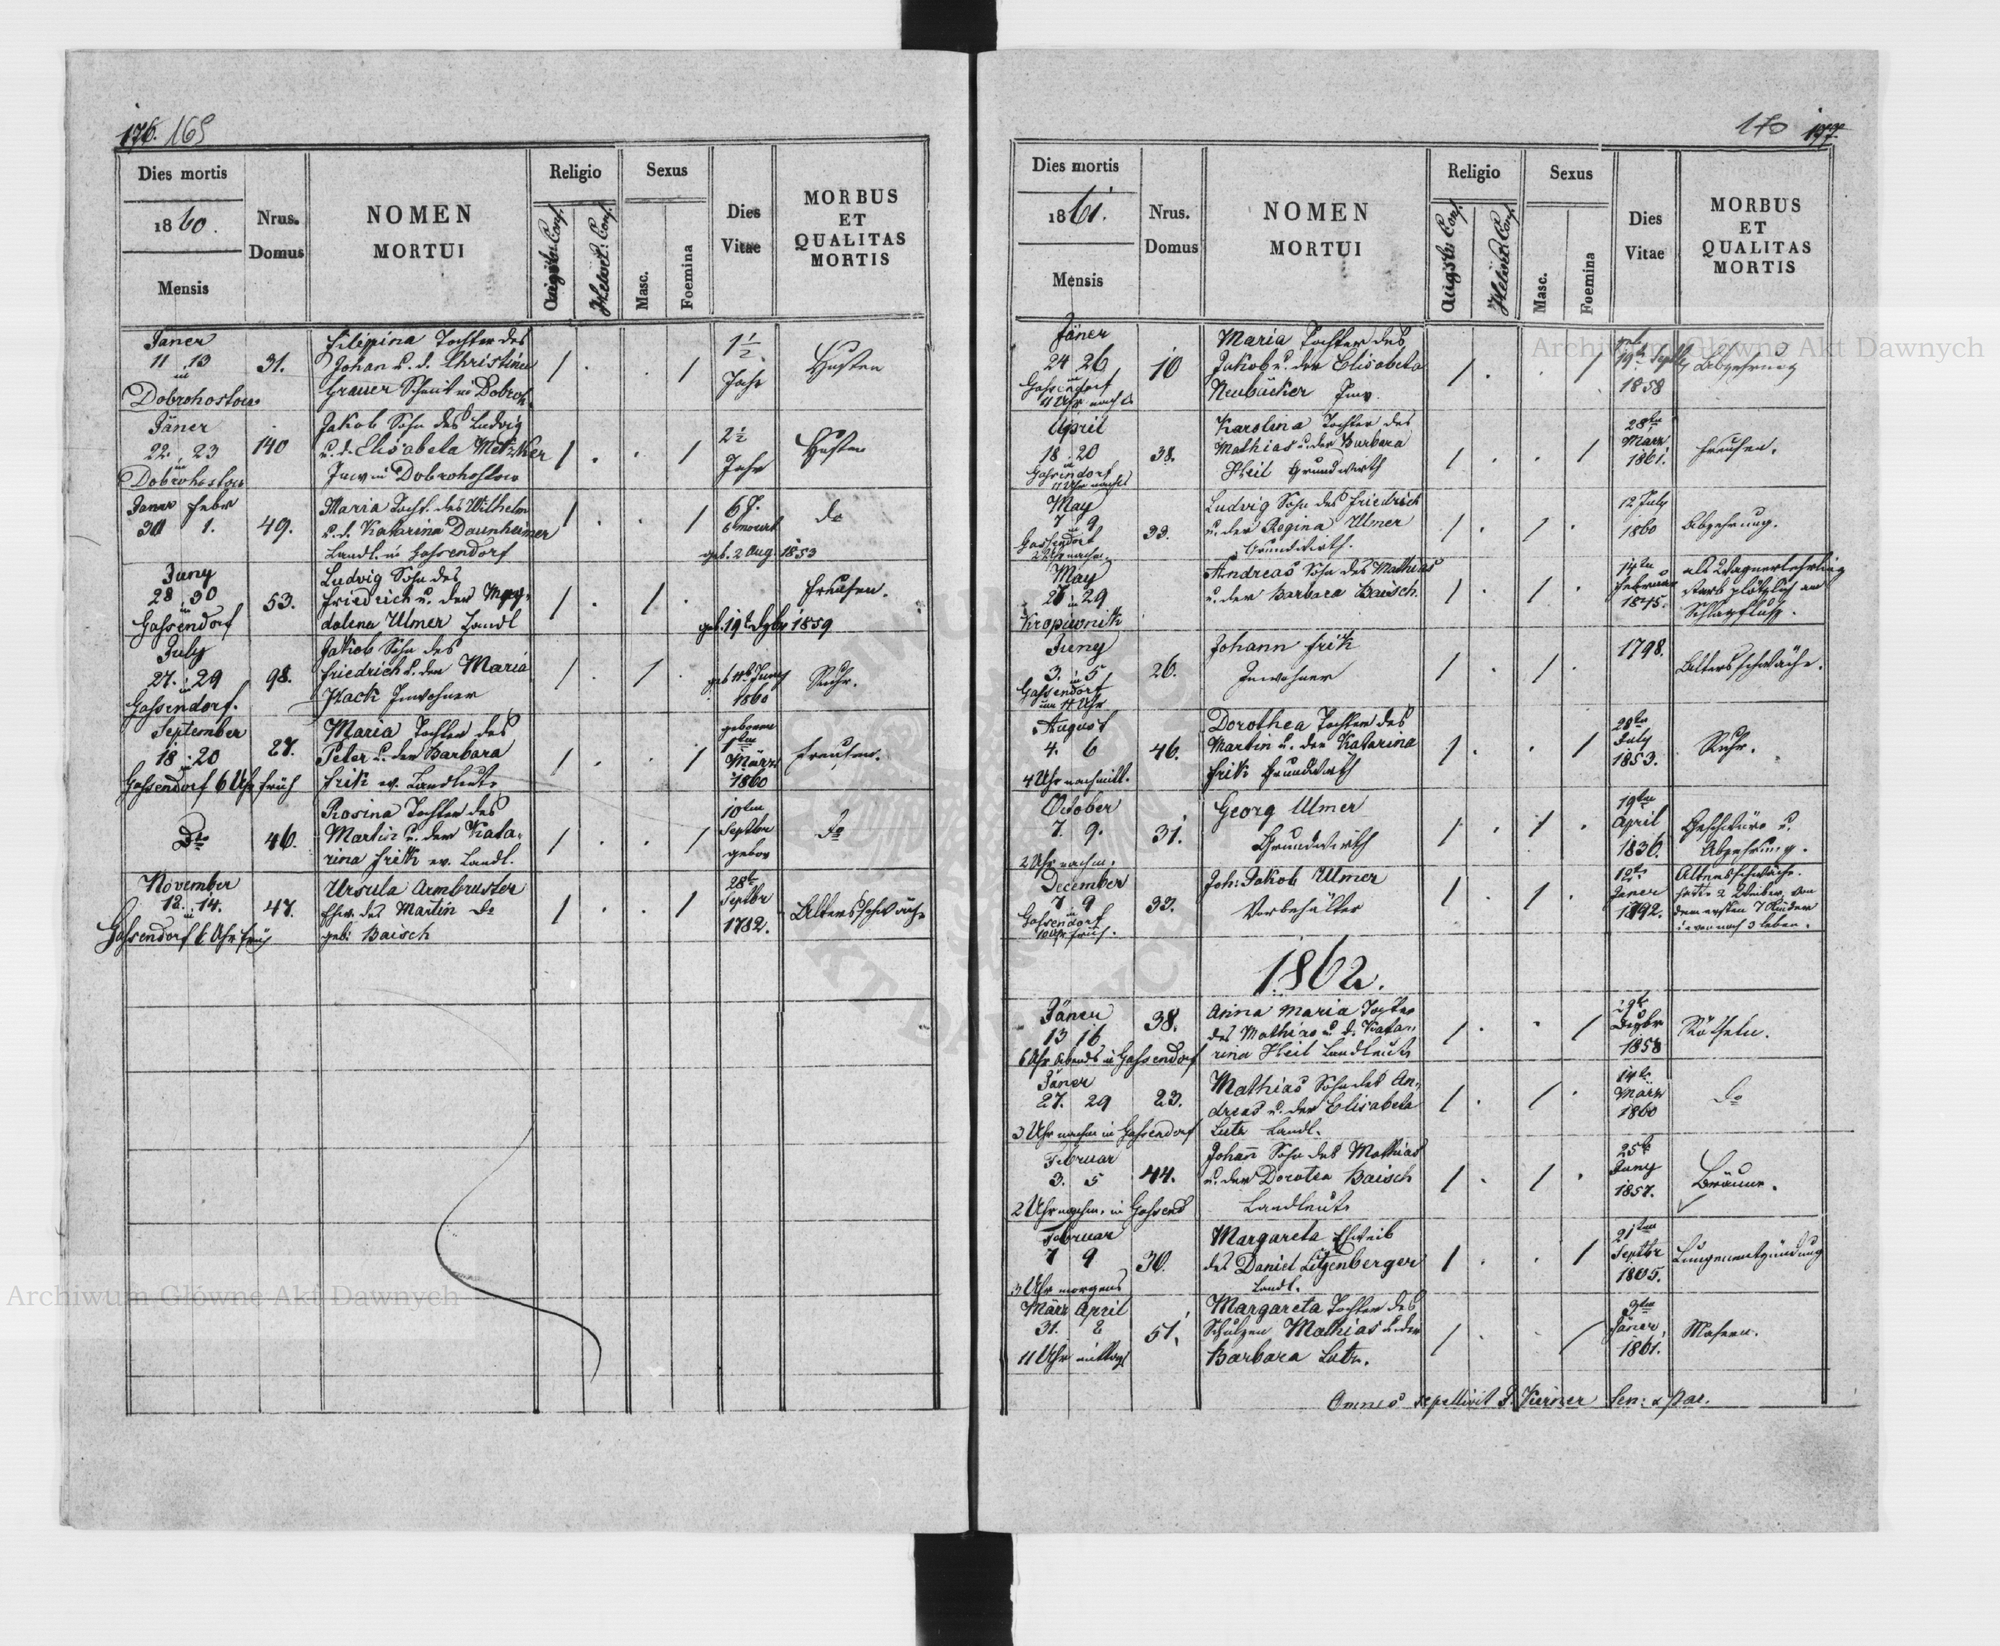 176. 169
Dies mortis
1860.
Mensis
Nrus. Domus
NOMEN
MORTUI
Religio
Augsb. Conf.
Helvet. Conf.
Sexus
Masc.
Foemina
Dies
Vitae
MORBUS
ET
QUALITAS
MORTIS
Jäner
11 13
in
Dobrohostow
31.
Filipina Tochter des
Johan u. d. Christina
Grauer Schmit in Dobroh.
1 . . 1
1½
Jahr
Husten
Jäner
22. 23
in
Dobrohostow
140
Jakob Sohn des Ludwig
u. d. Elisabeta Metzker
Inw in Dobrohostow
1 . . 1
2½
Jahr
Husten
Janer Febr
30 1.
49.
Maria Tocht. des Wilhelm
u. d. Katarina Daunheimer
Landl. in Gassendorf
1 . . 1
6 J.
6 monat
geb. 2 Aug. 1853
do
Juny
28 30
in
Gassendorf
53.
Ludvig Sohn des
Friedrich u. der Mag-
dolena Ulmer Landl
1 . 1 .
1859
Freusen.
July
27. 29
in
Gassendorf.
98.
Jakob Sohn des
Friedrich u. der Maria
Hack Inwohner
1 . 1 .
Juny
1860
Ruhr.
September
18 20
in
Gassendorf 6 Uhr früh
27.
Maria Tochter des
Peter u. der Barbara
Frik ev. Landleute
1 . . 1
geboren
1ten
März
1860
Freusen.
Do
46.
Rosina Tochter des
Martin u. der Kata-
rina Frik ev. Landl.
1 . . 1
10ten
Septbr
gebor
Do
November
12. 14.
in
Gassendorf 6 Uhr früh
47.
Ursula Armbruster
Ehw. des Martin do
geb: Baisch
1 . . 1
28t
Septbr
1782.
Altersschwäche
170 177.
Dies mortis
1861.
Mensis
Nrus.
Domus
NOMEN
MORTUI
Religio
Augsb. Conf.
Helvet. Conf.
Sexus
Masc.
Foemina
Dies
Vitae
MORBUS
ET
QUALITAS
MORTIS
Jäner
24 26
in
Gassendorf
4 Uhr nachm.
10
Maria Tochter des
Jakob u. der Elisabeta
Neubäcker Inw.
1 . . 1
19t Septbr
1858
Abzehrung
April
18 20
in
Gassendorf
38.
Karolina Tochter des
Mathias u. der Barbara
Heil Grundwirth
1 . . 1
28ten
März
1861.
Freusen.
May
7 9
in
Gassendorf
2 Uhr nachm.
33.
Ludvig Sohn des Friedrich
u. der Regina Ulmer
Grundwirth.
1 . 1 .
12 July
1860
Abzehrung.
May
29
in
Kropiwnik
Andreas Sohn des Mathias
u. der Barbara Baisch
1 . 1 .
14ten
Februar
1845.
als Wagnerlehrling
starb plötzlich am
Schlagfluss.
Juny
3. 5
in
Gassendorf
um 11 Uhr
26.
Johann Frik
Inwohner
1 . 1 .
1798.
Altersschwäche.
August
4. 6
4 Uhr nachmitt.
46.
Dorothea Tochter des
Martin u. der Katarina
Frik Grundwirth
1 . . 1
28ten
July
1853.
Ruhr.
October
7. 9.
2 Uhr nachm.
31.
Georg Ulmer
Grundwirth
1 . 1 .
19ten
April
1836.
Geschwüre u.
Abzehrung.
December
7 9
in
Gassendorf
10 Uhr früh.
33.
Joh: Jakob Ulmer
Vorbehälter
1 . 1 .
12t
Janer
1792.
Altersschwäche.
hatte 2 Weiber, von
dem ersten 7 Kinder
davon noch 3 leben.
1862.
Jäner
13 16
6 Uhr Abends in Gassendorf
38.
Anna Maria Tochter
des Mathias u. d. Kata-
rina Heil Landleute
1 . . 1
Dezbr
1858
Rötheln.
Jäner
27. 29
3 Uhr nachm in Gassendorf
23.
Mathias Sohn des An-
dreas u. der Elisabeta
Lutz Landl.
1 . 1 .
14t
März
1860
Do
Februar
3. 5
2 Uhr nachm. in Gassend
44.
Johann Sohn des Mathias
u. der Dorotea Baisch
Landleute
1 . 1 .
25t
Juny
1857.
Bräune.
Februar
7 9
3 Uhr morgens
30.
Margareta Ehweib
des Daniel Litzenberger
Landl.
1 . . 1
21ten
Septbr
1805.
Lungenentzündung
März April
31. 2
11 Uhr mittags
51.
Margareta Tochter des
Schulzen Mathias u. der
Barbara Lutz.
1 . . 1
9ten
Jäner
1861.
Masern.
Omnes sepellivit J. Kersner Sen: & Par.
Archiwum Główne Akt Dawnych
Archiwum Główne Akt Dawnych